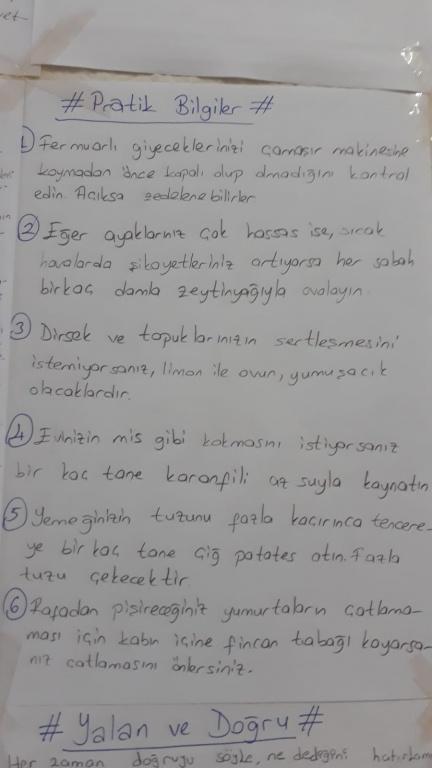 # Pratik Bilgiler #
1 Fermuarlı giyeceklerinizi çamaşır makinesine
koymadan önce kapalı olup olmadığını kontrol
edin. Açıksa zedelenebilirler
2 Eğer ayaklarınız çok hassas ise, sıcak
havalarda şikayetleriniz artıyorsa her sabah
birkaç damla zeytinyağıyla ovalayın.
3 Dirsek ve topuklarınızın sertleşmesini
istemiyorsanız, limon ile ovun, yumuşacık
olacaklardır.
4 Evinizin mis gibi kokmasını istiyorsanız
bir kaç tane karanfili az suyla kaynatın
5 Yemeğinizin tuzunu fazla kaçırınca tencere-
ye bir kaç tane çiğ patates atın. Fazla
tuzu çekecektir.
6 Rafadan pişireceğiniz yumurtaların çatlama-
maması için kabın içine fincan tabağı koyarsa-
nız çatlamasını önlersiniz.
# Yalan ve Doğru #
Her zaman doğruyu söyle, ne dediğini